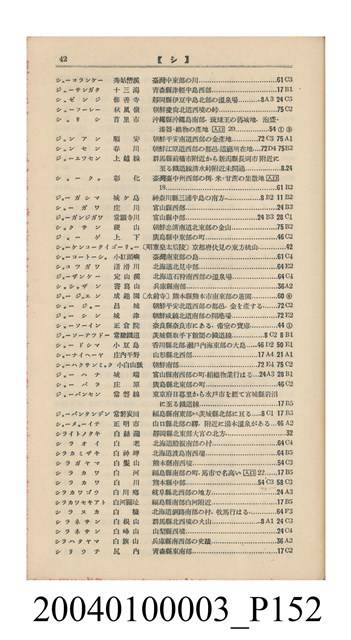 42 【シ】
シューコランケー 秀姑巒溪 臺灣中東部の川 61 C3
ジューサンガタ 十三潟 青森縣津輕半島西部 17 B1
シュゼンジ 修善寺 靜岡縣伊豆半島北部の溫泉場 8 A3 24 C3
シューフーレー 秋風嶺 朝鮮慶尙北道西境の峠 75 C2
シュリ 首里市 沖繩縣沖繩島南部
ジュンアン 順安 朝鮮平安南道西部の金產地 72 C3 75 A1
シュンセン 春川 朝鮮江原道西部の都邑・道廳所在地 72 D4 75 C2
ジョーエツセン 上越線 群馬縣前橋市附近から新潟縣長岡市附近に
至る鐵道線淸水峠附近未開通 8.24
ショーカ 彰化 臺灣臺中州西部の街
18 61 B2
ジョーガシマ 城ケ島 神奈川縣三浦半島の南方 8 B2 11 B2
ショーガワ 庄川 富山縣西部 24 B3
ジョーガンジガワ 常願寺川 富山縣中部 24 B3 28 C1
ショクサン 稷山 朝鮮忠淸南道北東部の金山 75 B2
ジョーゲ 上下 廣島縣中東部の町 46 C2
ショーケンコータイゴーリョー (昭憲皇太后陵) 京都府伏見の東方桃山 42
ショーコートーショ 小紅頭嶼 臺灣南東部の島 61 C4
ショコツガワ 渚滑川 北海道北見中部 64 E2
ジョーザンケー 定山溪 北海道石狩南西部の溫泉場 64 C4
ショシャザン 書寫山 兵庫縣南西部 36 A2
ジョージュエン 成趣園 (水前寺) 熊本縣熊本市南東部の惠園 60
ショージョー 昌城 朝鮮平安北道西部の都邑
ジョーシン 城津 朝鮮咸鏡北道南部の開港場 72 E2
ショーソーイン 正倉院 奈良縣奈良市にある、帝室の寶庫 44
ジョーソーテツドー 常總鐵道 茨城縣取手下館間の鐵道線 8 C2 8 B1
ショードシマ 小豆島 香川縣北部・瀨戶內海東部の大島 46 D2 50 E1
ショーナイヘーヤ 庄內平野 山形縣西部 17 A4 21 A1
ショーハクサンミャク 小白山脈 朝鮮南部 72 E4 75 C2
ジョーハナ 城端 富山縣南西部の町・絹織物業行はる 24 A3 28 B1
ショーバラ 庄原 廣島縣北東部の町 46 C2
ジョーバンセン 常磐線 東京府日暮里から水戶市を經て宮城縣岩沼
に至る鐵道線 17 B5
ジョーバンタンデン 常磐炭田 福島縣南東部から茨城縣北部に亙る 8 C1 17 B5
ショーメーイチ 正明市 山口縣北部の驛、附近に湯本溫泉がある 46 A2
シライトノタキ 白絲瀧 靜岡縣北東部大宮の北方 32
シラオイ 白老 北海道膽振南部の村 64 C4
シラカミザキ 白神岬 北海道渡島南西部 64 B5
シラガヤマ 白髮山 熊本縣南西境 54 C3
シラカワ 白河 福島縣南部の町、馬市で名高い 人口 22 17 B5
シラカワ 白川 熊本縣中部 54 C3 58 C3
シラカワゴウ 白川鄕 岐阜縣北西部の地方 24 A3
シラカワセキアト 白河關址 福島縣南部白河附近 17 B5
シラヌカ 白糠 北海道釧路南部の村、牧馬行はる 64 F3
シラネサン 白根山 群馬縣北西境の火山 8 A1 24 C3
シラネサン 白峰山 山梨縣西境 24 C4
シラハタヤマ 白旗山 兵庫縣南西部の史蹟 36 A2
シリウチ 尻內 青森縣東南部 17 C2
20040100003_P152